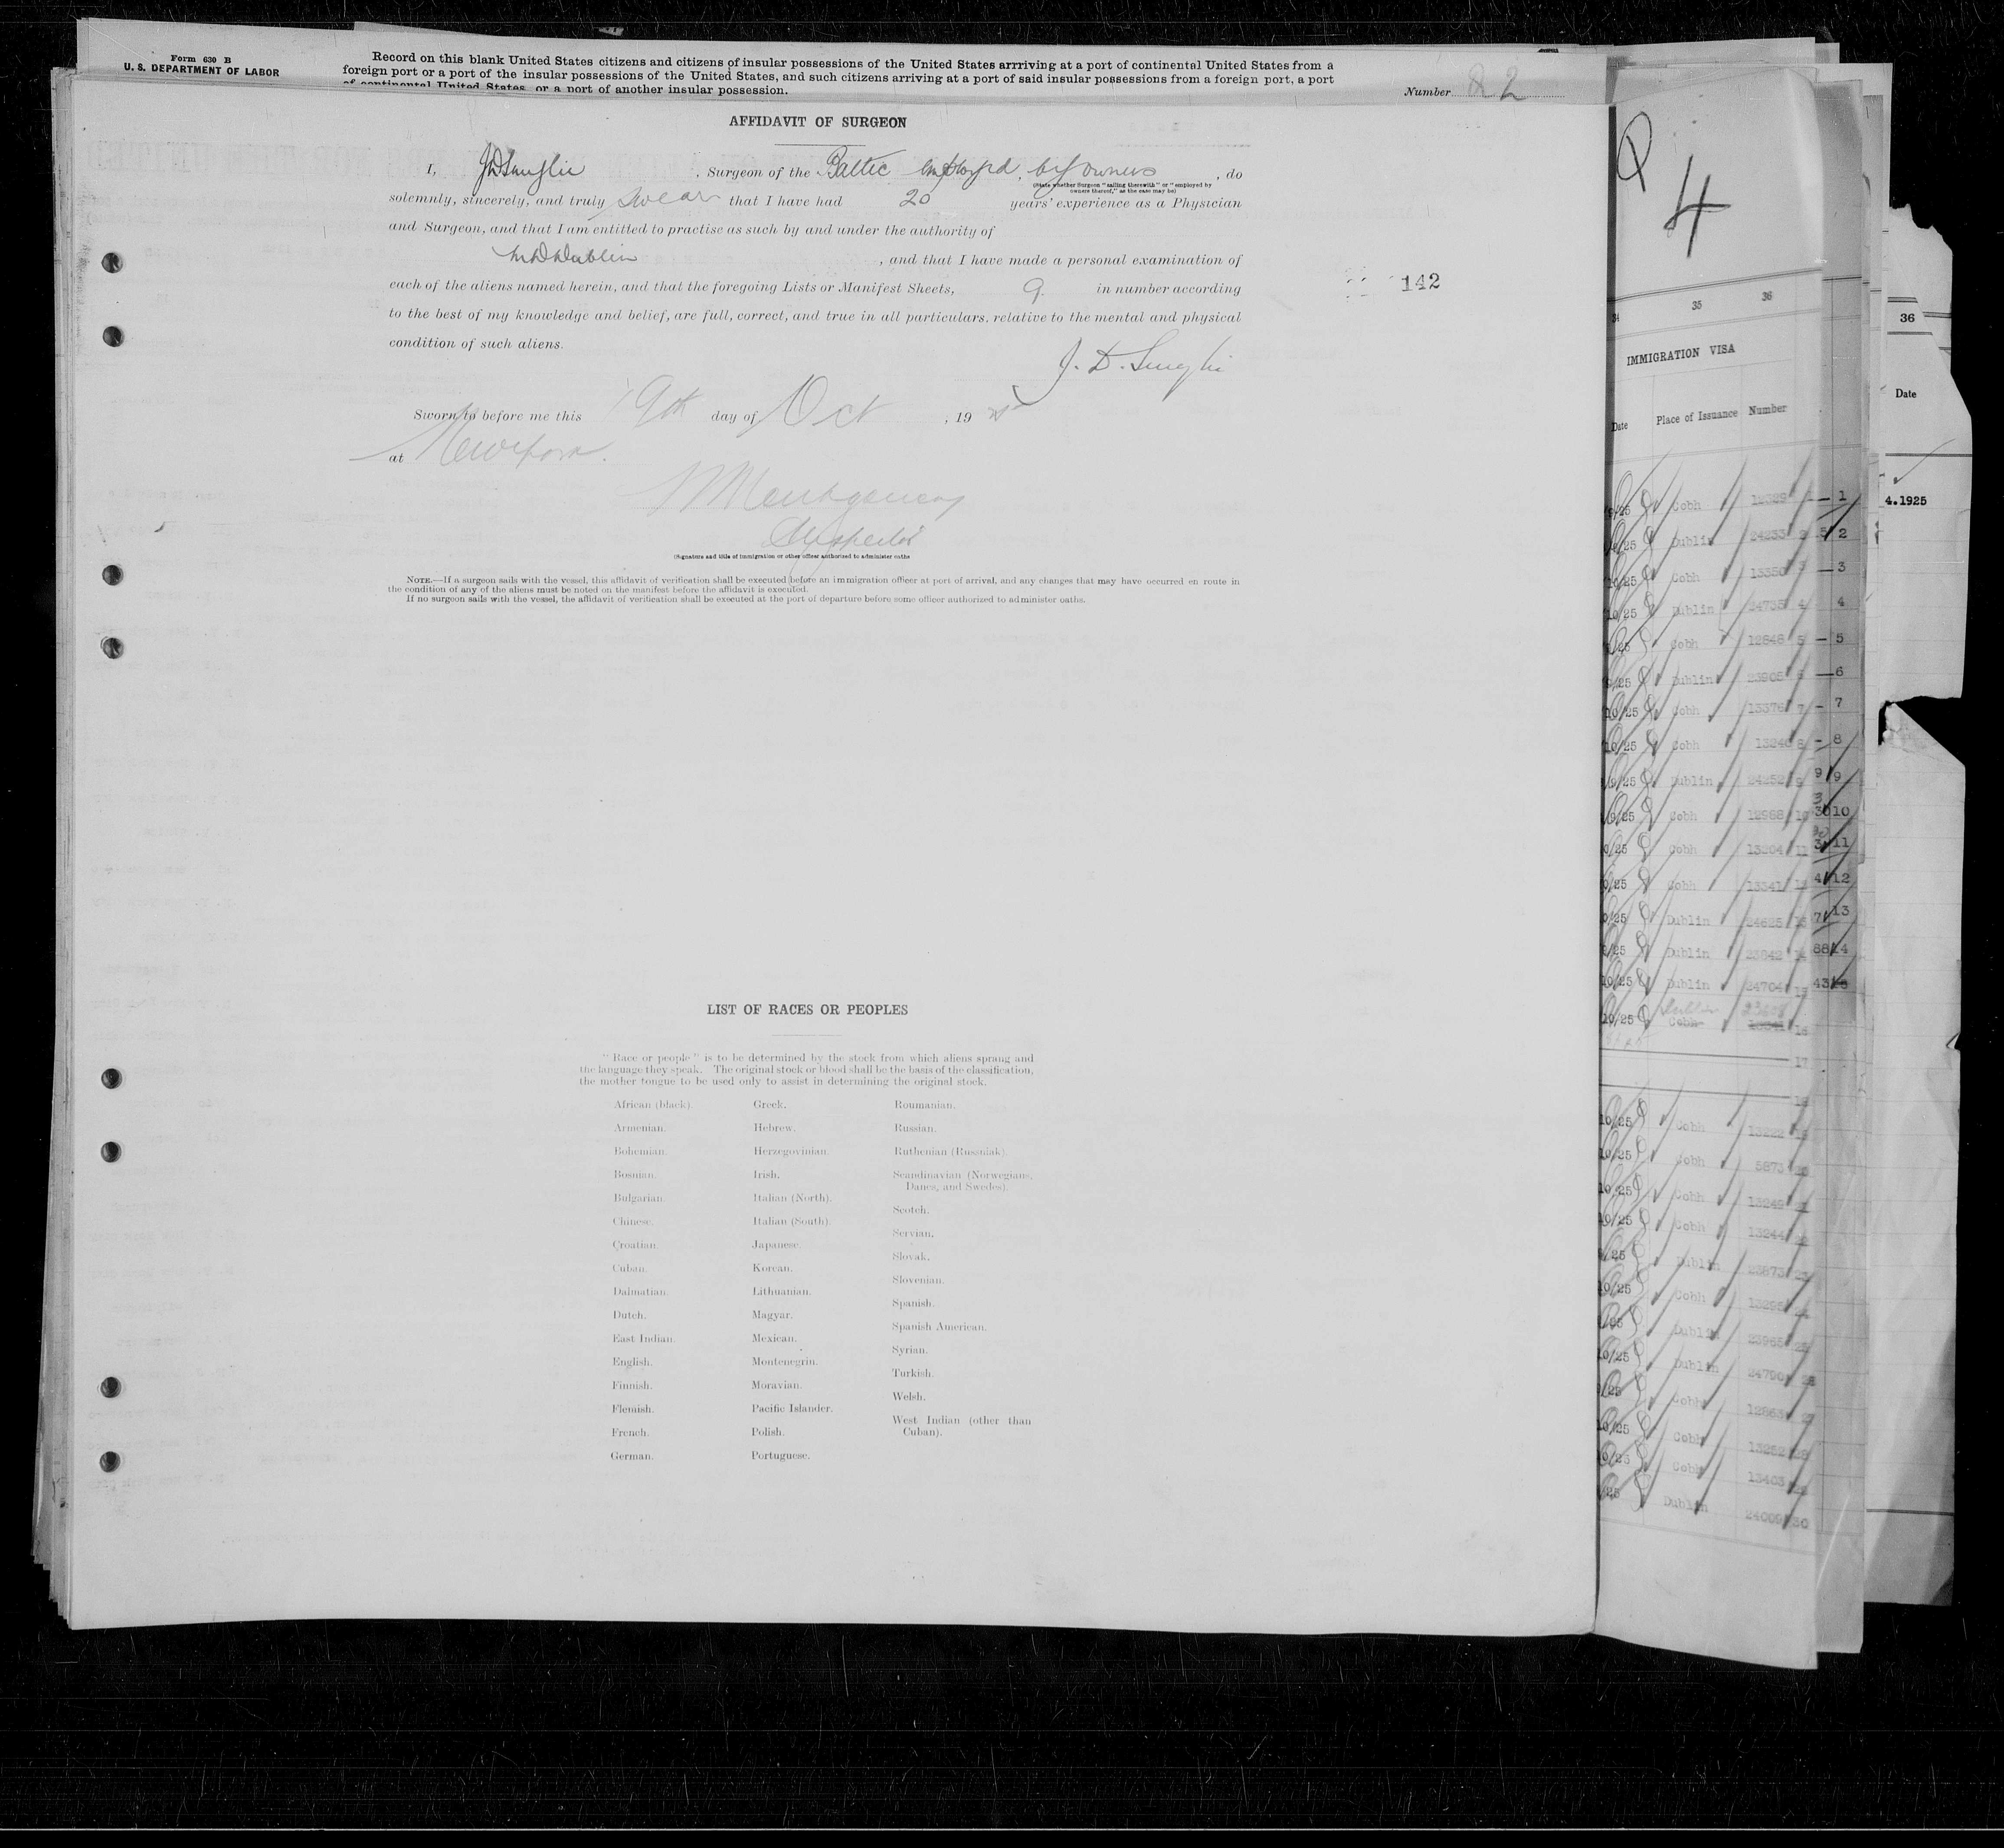 Form 630 B
U. S. DEPARTMENT OF LABOR
Record on this blank United States citizens and citizens of insular possessions of the United States arrriving at a port of continental United States from a
foreign port or a port of the insular possessions of the United States, and such citizens arriving at a port of said insular possessions from a foreign port, a port
of continental United States, or a port of another insular possession.
Number 82
AFFIDAVIT OF SURGEON
I, , Surgeon of the Baltic employed by owners, do
(State whether Surgeon "sailing therewith" or "employed by
owners thereof," as the case may be)
solemnly, sincerely, and truly swear that I have had 20 years' experience as a Physician
and Surgeon, and that I am entitled to practise as such by and under the authority of
Dublin, and that I have made a personal examination of
each of the aliens named herein, and that the foregoing Lists or Manifest Sheets, 9 in number according
142
to the best of my knowledge and belief, are full, correct, and true in all particulars, relative to the mental and physical
condition of such aliens.
J. D.
Sworn to before me this 19th day of Oct, 19 25
at New York.
Montgomery
Inspector
(Signature and title of immigration or other officer authorized to administer oaths
NOTE.—If a surgeon sails with the vessel, this affidavit of verification shall be executed before an immigration officer at port of arrival, and any changes that may have occurred en route in
the condition of any of the aliens must be noted on the manifest before the affidavit is executed.
If no surgeon sails with the vessel, the affidavit of verification shall be executed at the port of departure before some officer authorized to administer oaths.
LIST OF RACES OR PEOPLES
"Race or people" is to be determined by the stock from which aliens sprang and
the language they speak. The original stock or blood shall be the basis of the classification,
the mother tongue to be used only to assist in determining the original stock.
African (black).
Armenian.
Bohemian.
Bosnian.
Bulgarian.
Chinese.
Croatian
Cuban.
Dalmatian.
Dutch.
East Indian.
English.
Finnish.
Flemish.
French.
German.
Greek.
Hebrew.
Herzegovinian.
Irish.
Italian (North).
Italian (South).
Japanese.
Korean.
Lithuanian.
Magyar.
Mexican.
Montenegrin.
Moravian.
Pacific Islander.
Polish.
Portuguese.
Roumanian.
Russian.
Ruthenian (Russniak).
Scandinavian (Norwegians,
Danes, and Swedes).
Scotch.
Servian.
Slovak.
Slovenian.
Spanish.
Spanish American.
Syrian.
Turkish.
Welsh.
West Indian (other than
Cuban).
4
34 35 36
IMMIGRATION VISA
Date Place of Issuance Number
9/25 Cobh 1
/25 Dublin 24233 2
10/25 Cobh 13350 3
10/25 Dublin 24735 4
/25 Cobh 12848 5
9/25 Dublin 23905 6
10/25 Cobh 13376 7
10/25 Cobh 13240 8
9/25 Dublin 24252 9
9/25 Cobh 12968 10
0/25 Cobh 13204 11
0/25 Cobh 13341 12
0/25 Dublin 24625 13
9/25 Dublin 23842 14
10/25 Dublin 24704 15
10/25 Dublin 16
17
18
10/25 Cobh 13222 19
10/25 Cobh 5873 20
10/25 Cobh 13249 21
10/25 Cobh 13244 22
/25 Dublin 23873 23
10/25 Cobh 13295 24
/25 Dublin 23965 25
10/25 Dublin 24790 26
/25 Cobh 12863 27
10/25 Cobh 13252 28
10/25 Cobh 13403 29
/25 Dublin 24009 30
36
Date
4.1925